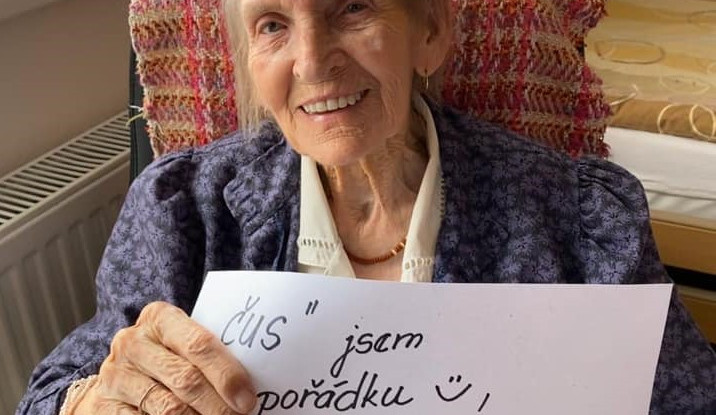 čus" jsem
pořádku ّت,